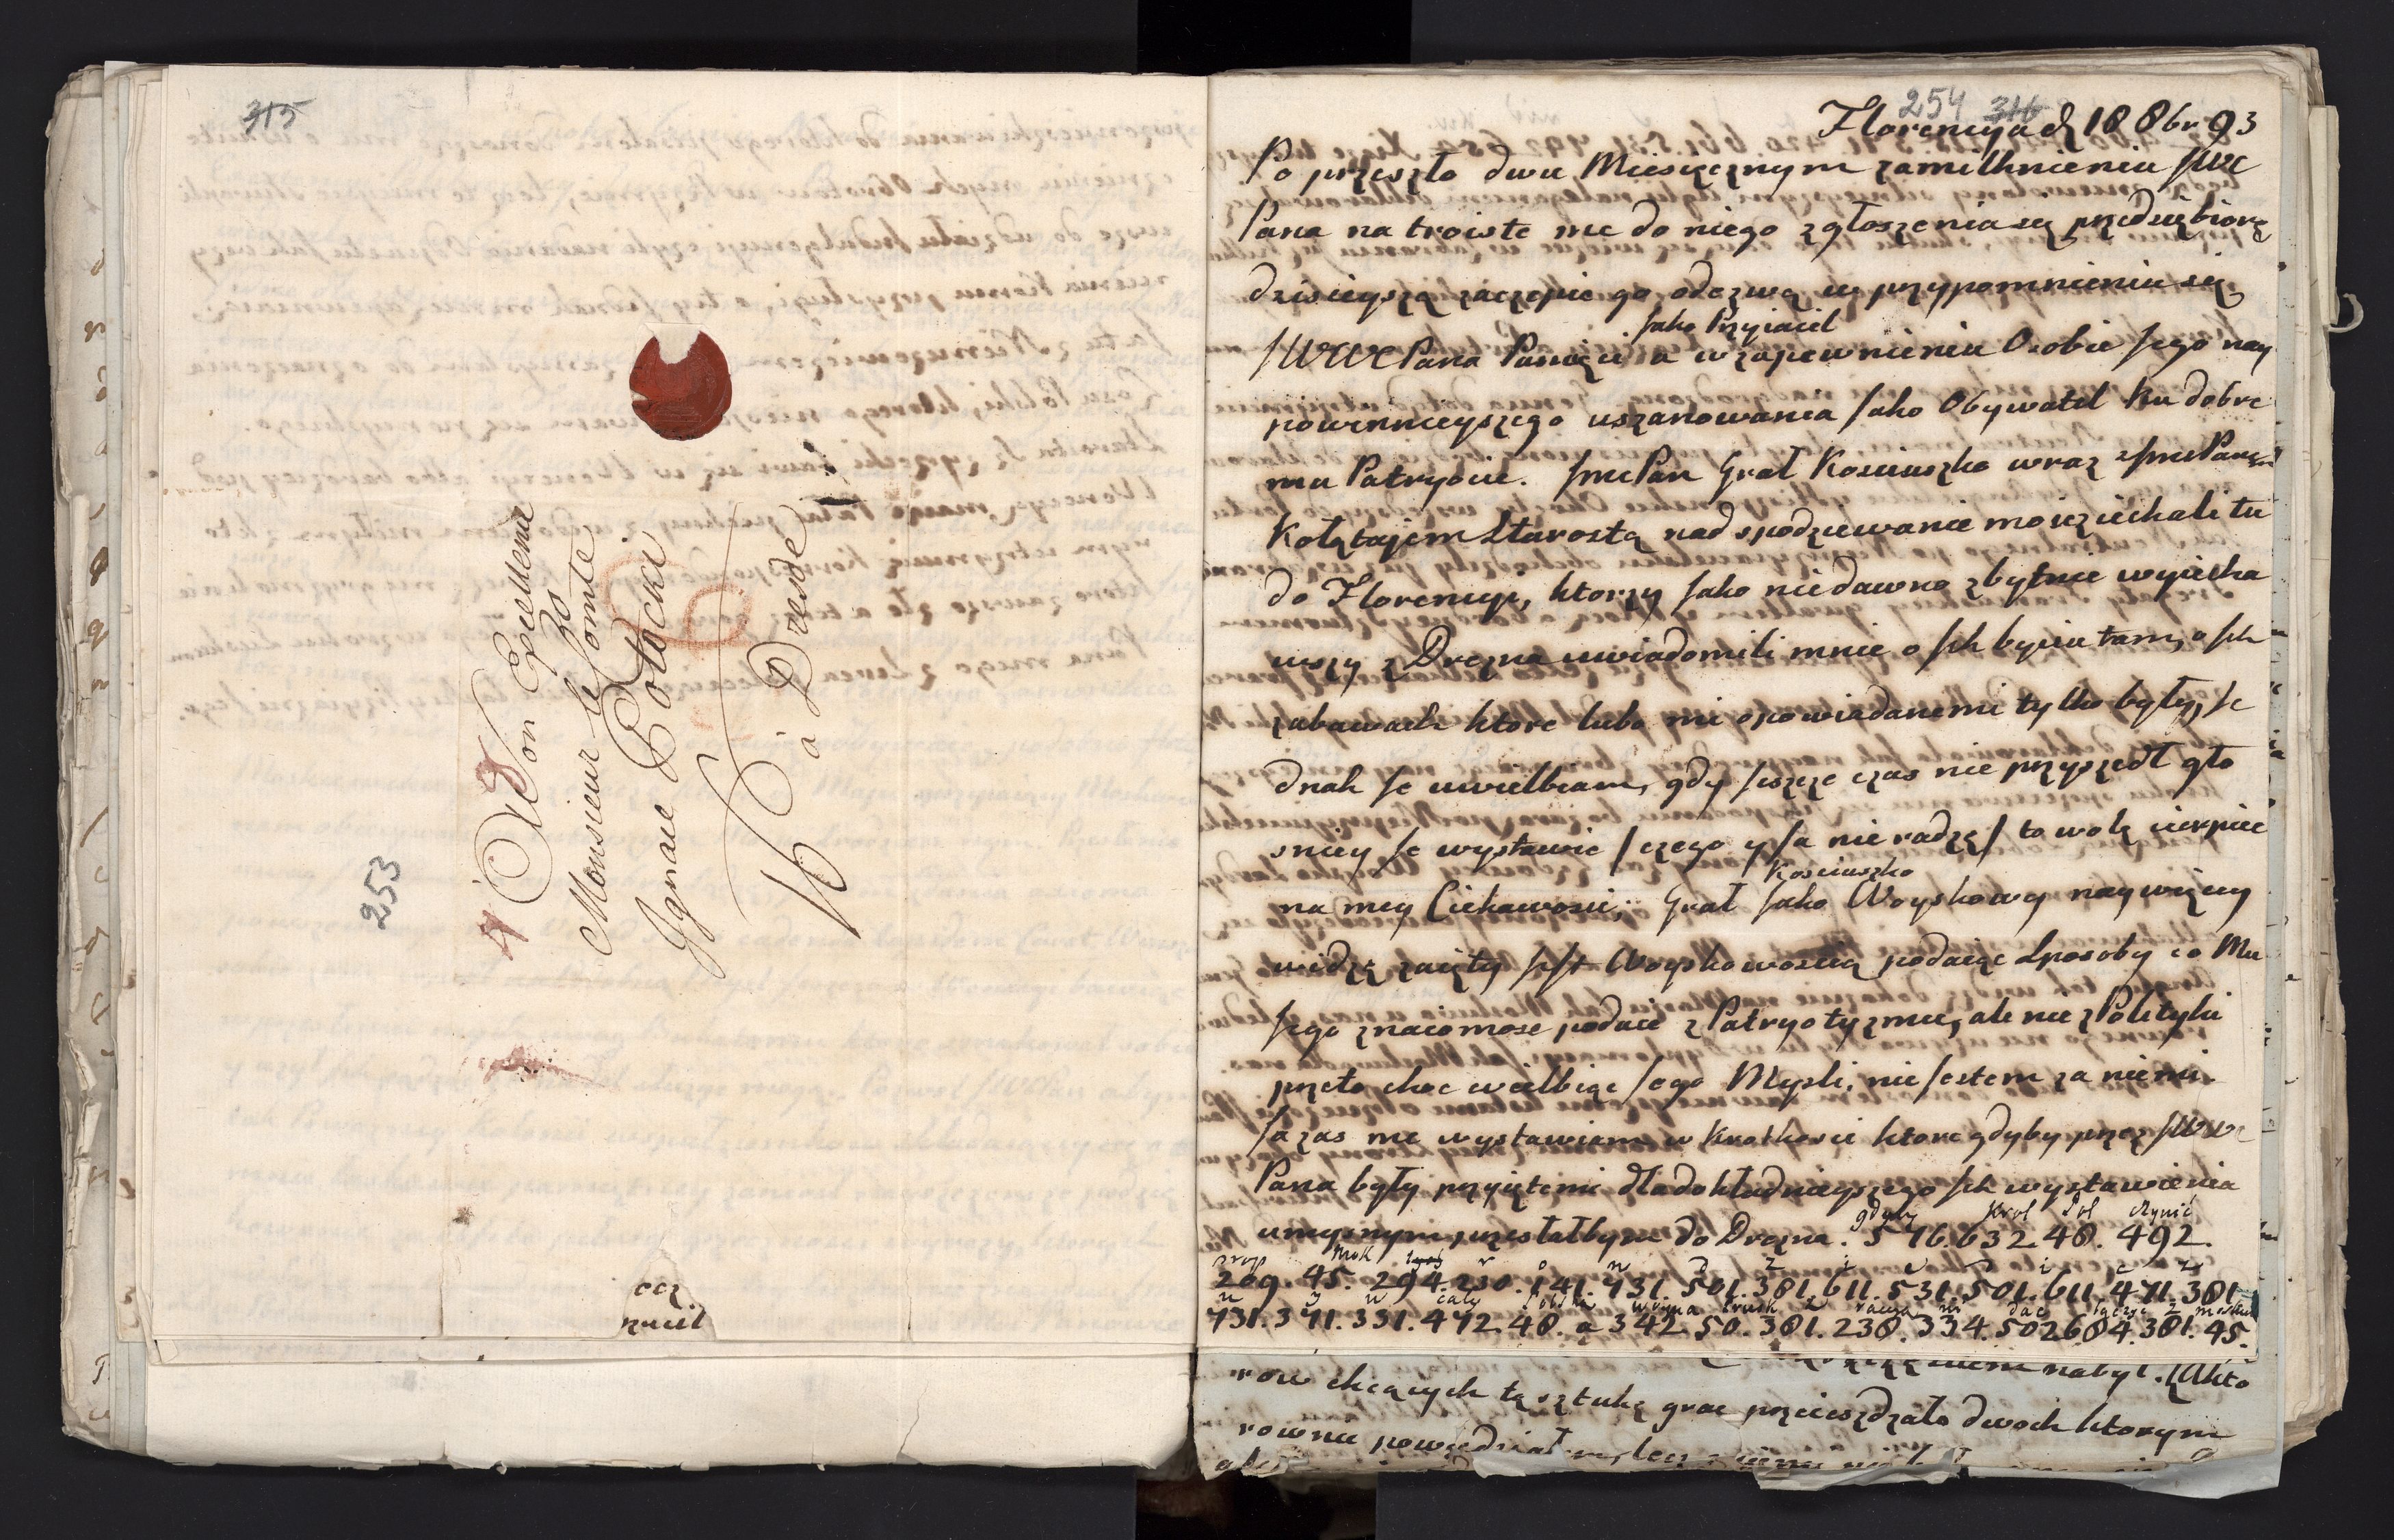 315
253
A Son Excellence
Monsieur le Comte
Ignace Potocki
à Dresde
254 316
Florencya d 18 8br 93
Po przeszło dwu Miesięcznym zamilknieniu JWc
Pana na troiste me do niego zgłoszenia się przedsiębiorę
dzisieyszą zaczepic go odezwą w przypomnieniu się
Jako Przyiaciel
JWWc Pana Pamięci a w zapewnieniu Osobie Jego nay
powinnieyszego uszanowania Jako Obywatel ku dobre
mu Patryocie. Jmc Pan Grał Kosciuszko wraz z Jmc Panem
Kołątajem Starostą nad spodziewanie moie ziechali tu
do Florencyi, ktorzy Jako niedawno zbytnie wyiecha
wszy z Drezna uwiadomili mnie o Ich byciu tam, o Ich
zabawach ktore lubo mi opowiadanemi tylko były, Je
dnak Je uwielbiam, gdy Jeszcze czas nie przyszedł gło
sniey Je wystawic / czego y Ja nie radzę / to wolę cierpiec
Kosciuszko
na mey Ciekawosci; Grał Jako Woyskowy naywięcey
widzę zaięty Jest Woyskowoscią podaiąc Sposoby co Mu
Jego znaiomosc podaie z Patryotyzmu, ale nie z Polityki
przeto choc wielbiąc Jego Mysli, nie Jestem za niemi.
Ja zas me wystawiam w Krotkosci ktore gdyby przez JWWc
Pana były przyiętemi dla dokładnieyszego Ich wystawienia
gdyby Krol Pol czynić
umyslnym przesłałbym do Drezna. 576. 632. 48. 492.
prop Mosk
209. 45. 294. 230. 141. 731. 501. 381. 611. 531. 501. 611. 471. 381
cały Polska woyna
731. 371. 331. 472. 48. a 342. 50. 381. 238. 334. 502 684. 381. 45.
row chcących tą sztukę grac przyieszdzało dwoch ktorym